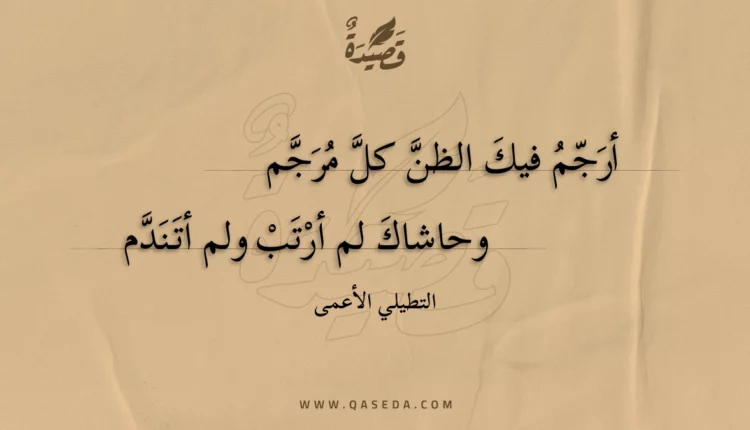 قَصِيْدَةٌ
أرَجّمُ فيكَ الظنَّ كلَّ مُرَجَّم
وحاشاكَ لم أرْتَبْ ولم أتَنَدَّم
التطيلي الأعمى
WWW.QASEDA.COM